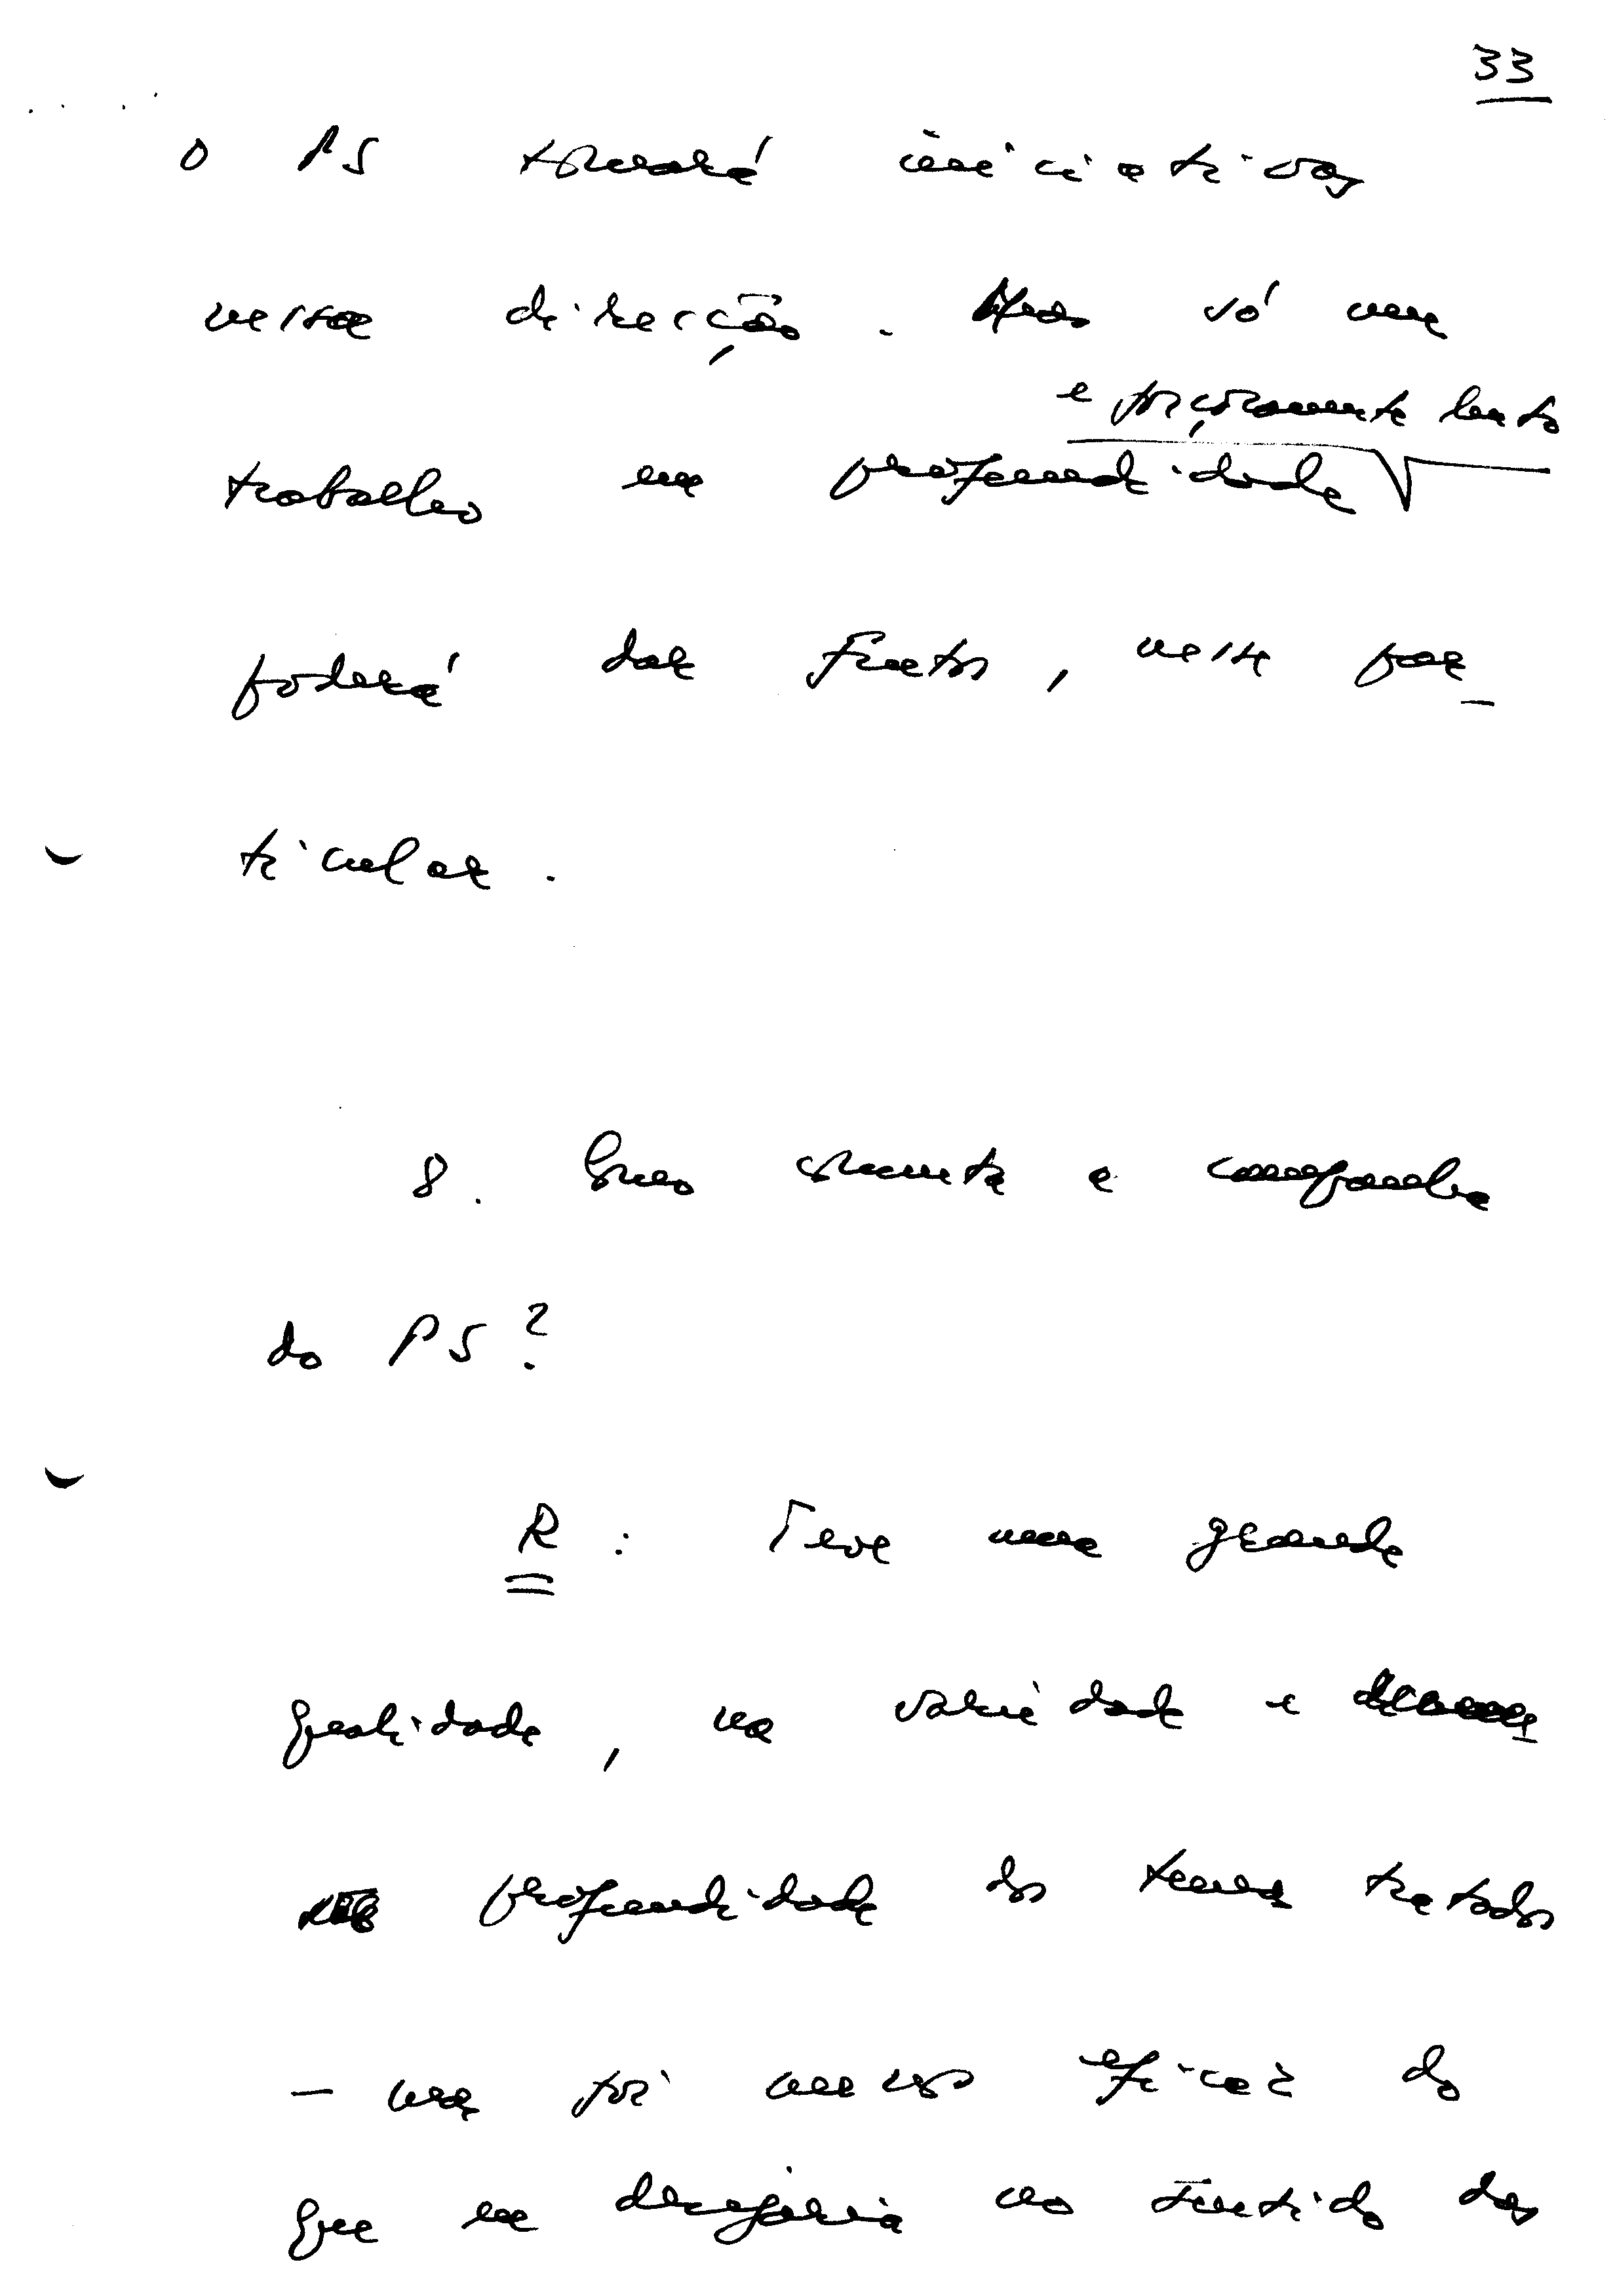 33
o PS tomará iniciativas
nessa direcção. Mas só um
e forçosamente lento
trabalho em profundidade
poderá dar frutos, neste par-
ticular.
8. Como comenta a campanha
do PS?
R: Teve uma grande
qualidade, na variedade e
profundidade dos temas tratados
- mas foi menos eficaz do
que eu desejaria no sentido das